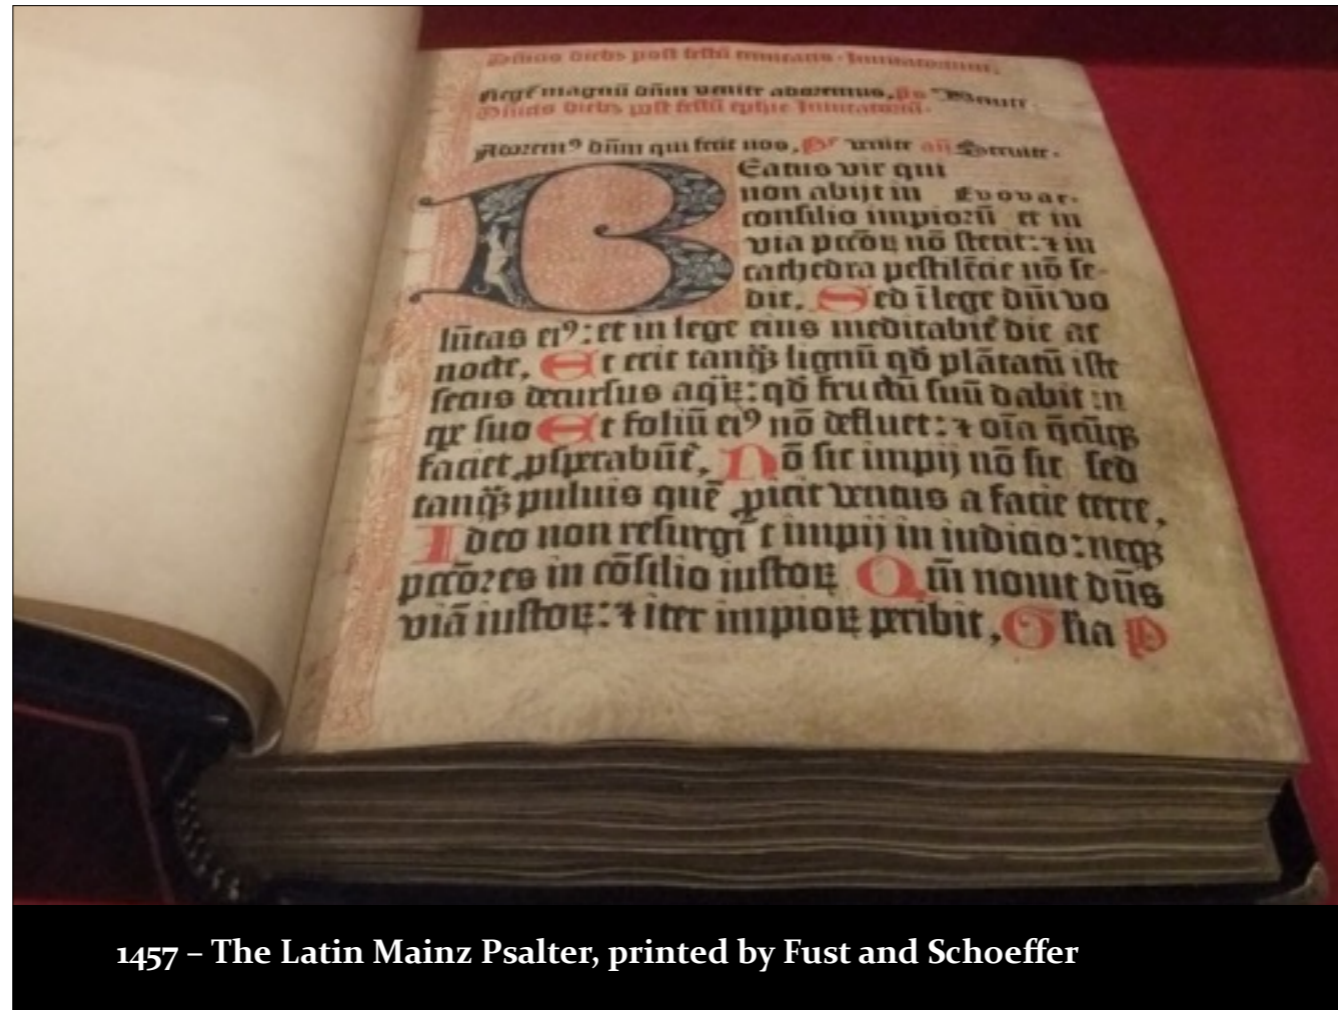 Regē magnū dn̄m venite adoremus, p̄s Venite.
Adorem⁹ dn̄m qui fecit nos, P̄s venite an̄ Seruite.
Beatus vir qui
non abijt in Evovae.
consilio impiorū et in
via pccōꝝ nō stetit: ⁊ in
cathedra pestilēcie nō se-
dit, Sed ī lege dn̄i vo
lūtas ei⁹: et in lege eius meditabit᷑ die ac
nocte, Et erit tanꝙ̄ lignū qd̄ plātatū iste
secus decursus aqꝝ: qd̄ fructū suū dabit in
tꝑe suo Et foliū ei⁹ nō defluet: ⁊ oīa q̄cūqꝫ
faciet ꝓsperabūt᷑, Nō sic impij nō sic sed
tanꝙ̄ puluis quē ꝓicit ventus a facie terre,
Ideo non resurgīt impij in iudicio: neqꝫ
pccōres in cōsilio iustoꝝ Qm̄ nouit dn̄s
viā iustoꝝ: ⁊ iter impioꝝ peribit, Gl̄ia P
1457 – The Latin Mainz Psalter, printed by Fust and Schoeffer